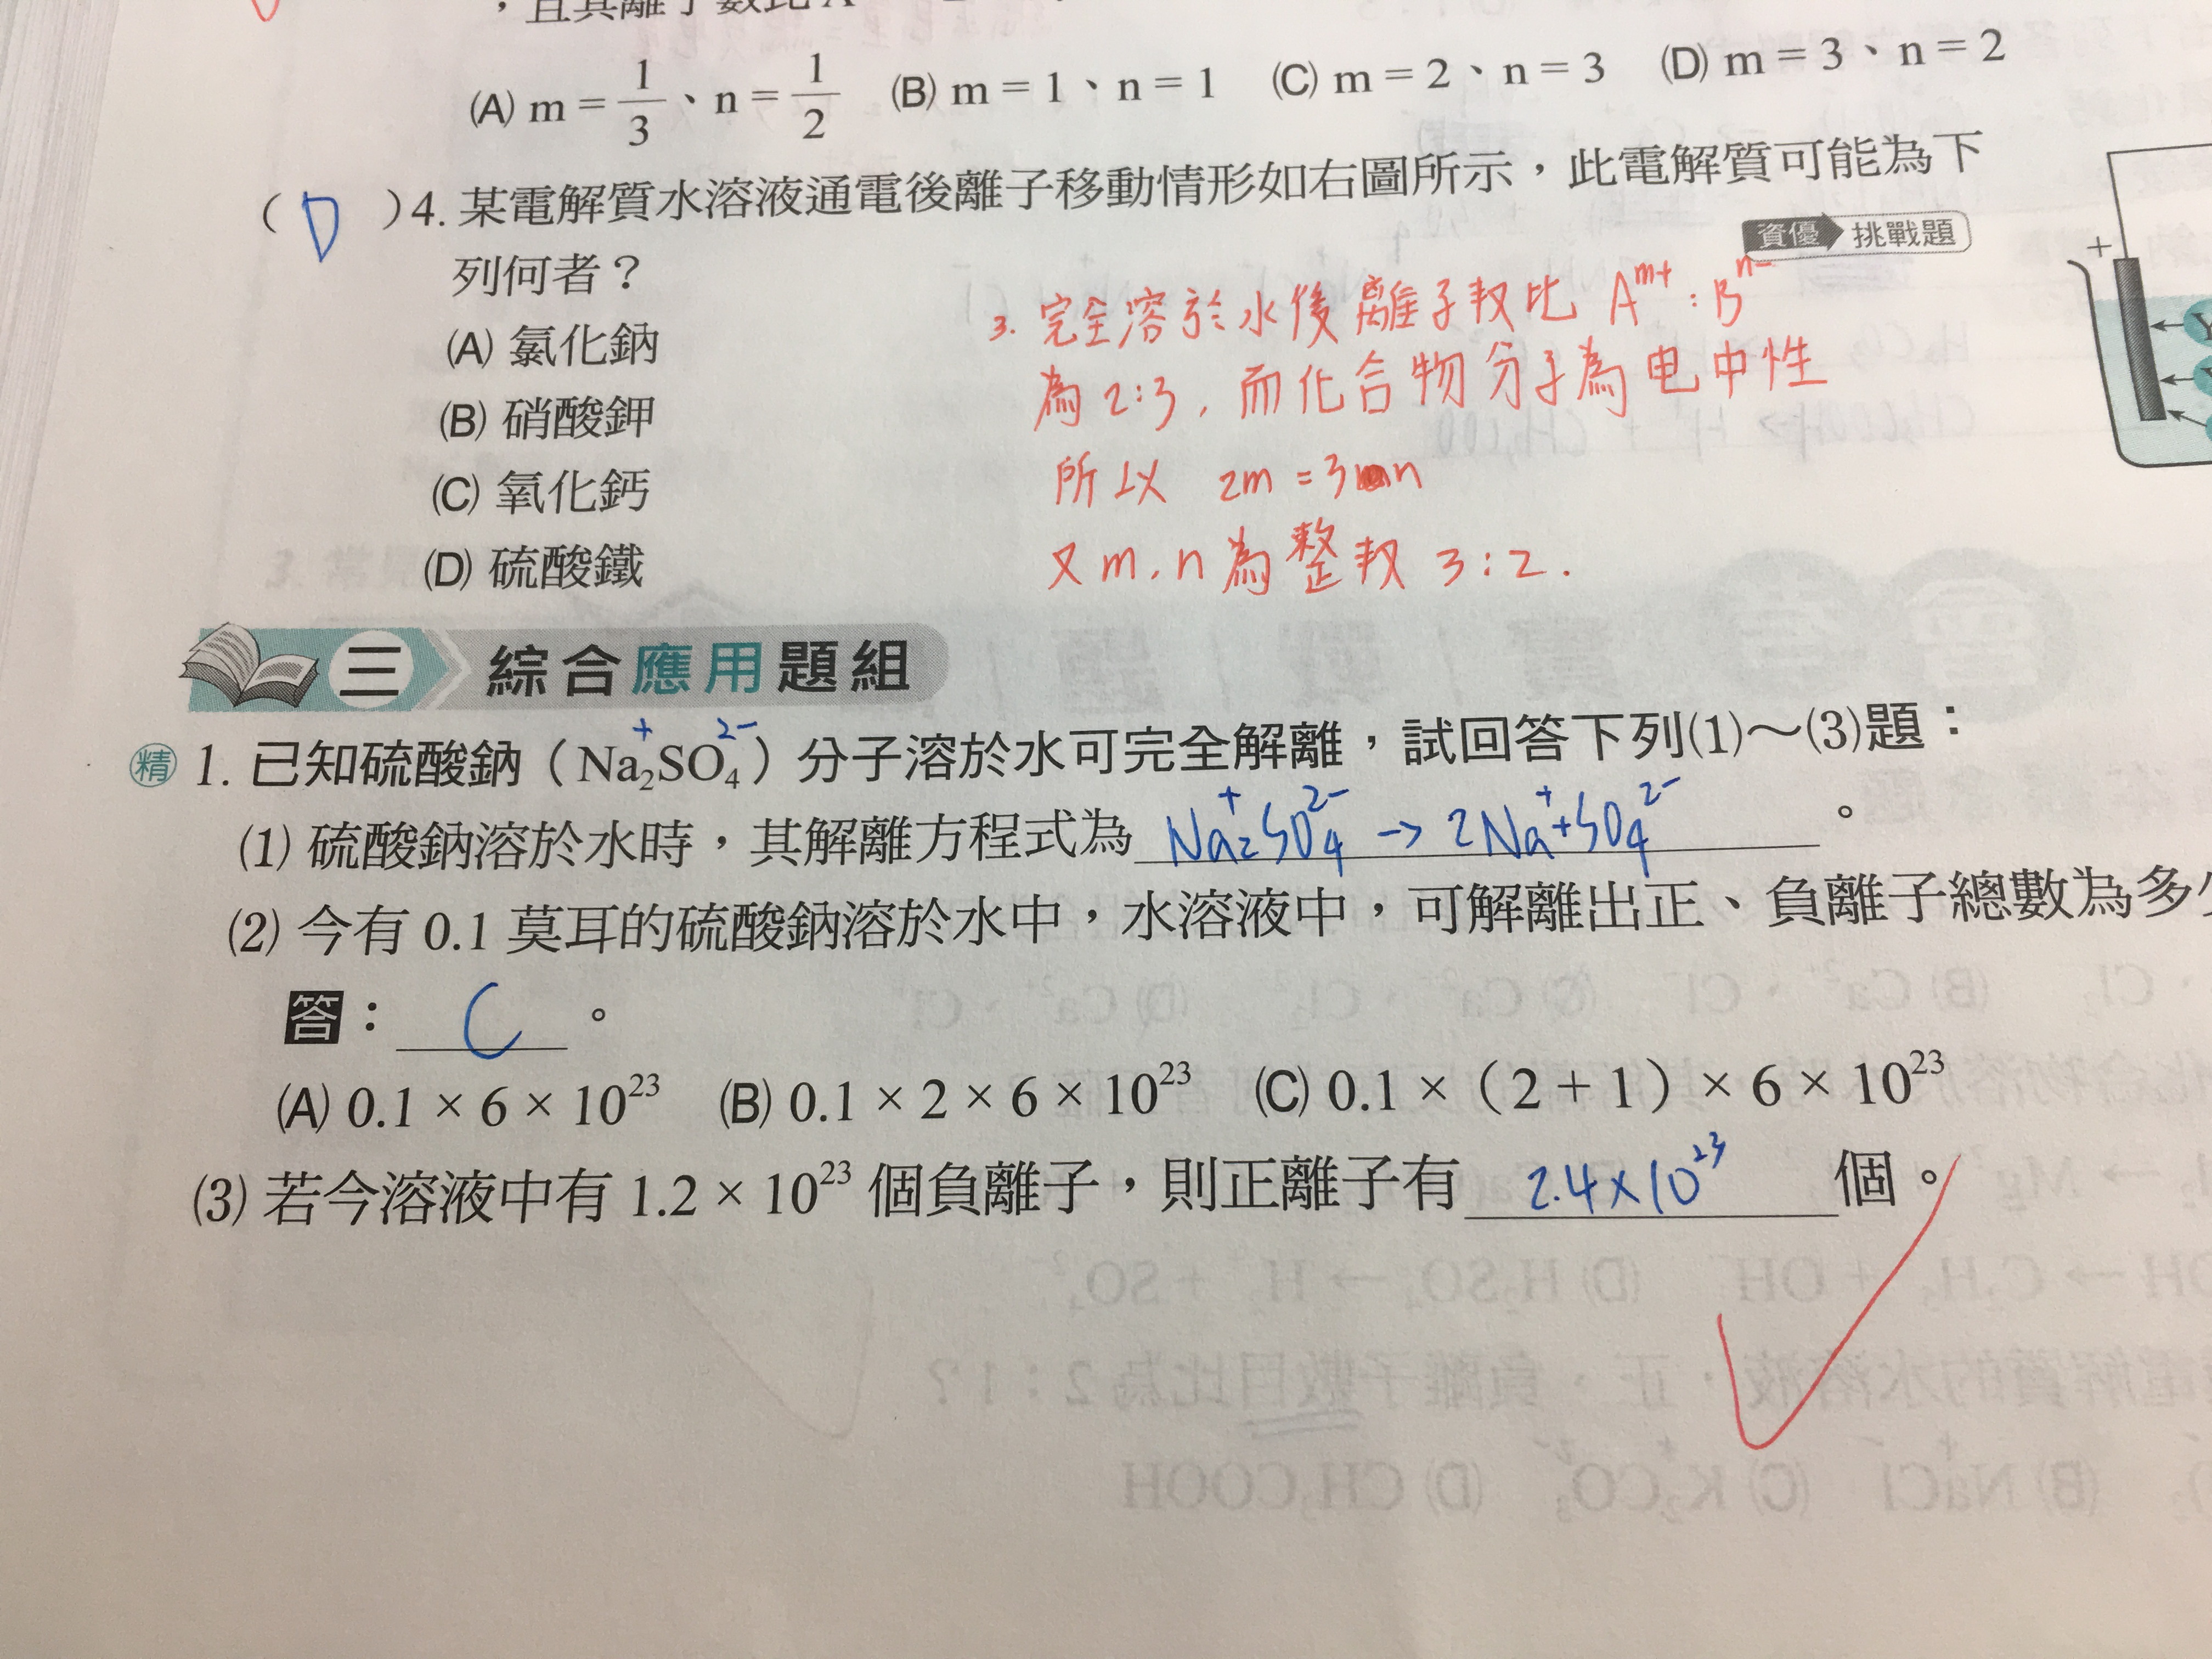 ，且其離子數比 A
(A) m = 1/3、n = 1/2 (B) m = 1、n = 1 (C) m = 2、n = 3 (D) m = 3、n = 2
( D )4. 某電解質水溶液通電後離子移動情形如右圖所示，此電解質可能為下
列何者？
資優 挑戰題
(A) 氯化鈉
(B) 硝酸鉀
(C) 氧化鈣
(D) 硫酸鐵
3. 完全溶於水後離子数比 A^m+ : B^n-
為 2:3，而化合物分子為电中性
所以 2m = 3n
又 m, n 為整数 3:2.
+
三 綜合應用題組
精 1. 已知硫酸鈉（Na₂⁺SO₄²⁻）分子溶於水可完全解離，試回答下列(1)～(3)題：
(1) 硫酸鈉溶於水時，其解離方程式為 Na₂⁺SO₄²⁻ → 2Na⁺+SO₄²⁻。
(2) 今有 0.1 莫耳的硫酸鈉溶於水中，水溶液中，可解離出正、負離子總數為多
答： C 。
(A) 0.1 × 6 × 10²³ (B) 0.1 × 2 × 6 × 10²³ (C) 0.1 ×（2 + 1）× 6 × 10²³
(3) 若今溶液中有 1.2 × 10²³ 個負離子，則正離子有 2.4×10²³ 個。